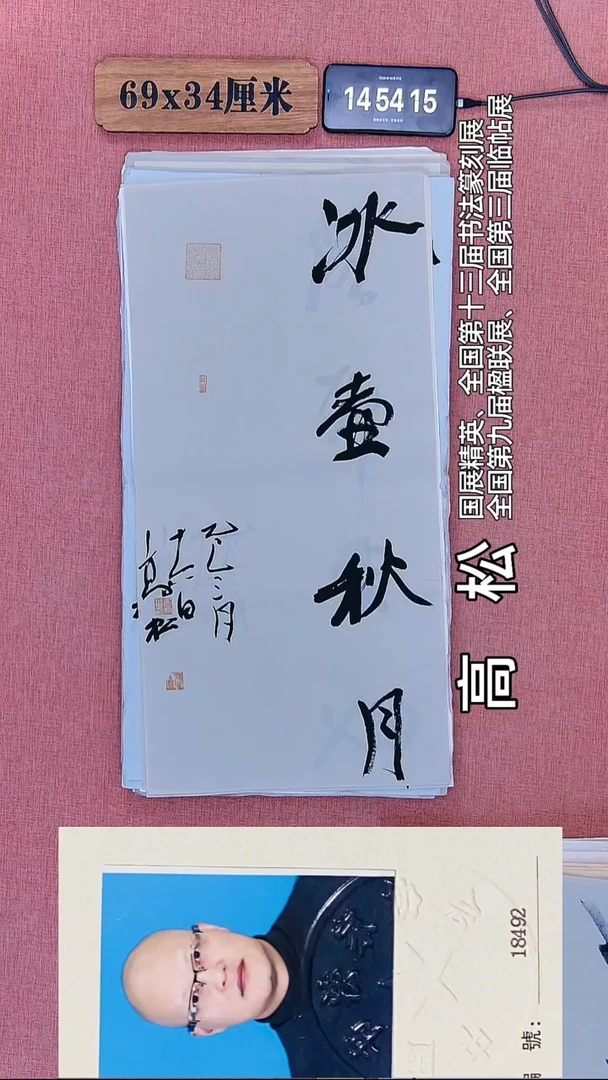 69x34厘米
14 54 15
冰壶秋月
乙巳三月
十六日
高松
国展精英、全国第十三届书法篆刻展
全国第九届楹联展、全国第三届临帖展
高 松
號：
18492